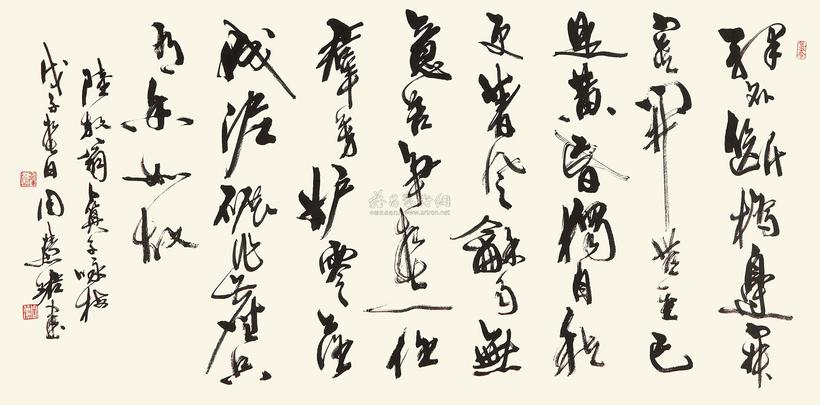 驛外斷橋邊寂
寞開無主已
是黄昏獨自愁
更著風龢雨無
意苦爭春一任
羣芳妒零落
成泥碾作塵只
有香如故
陸放翁卜算子咏梅
戊子春日周慧珺書
www.artron.net